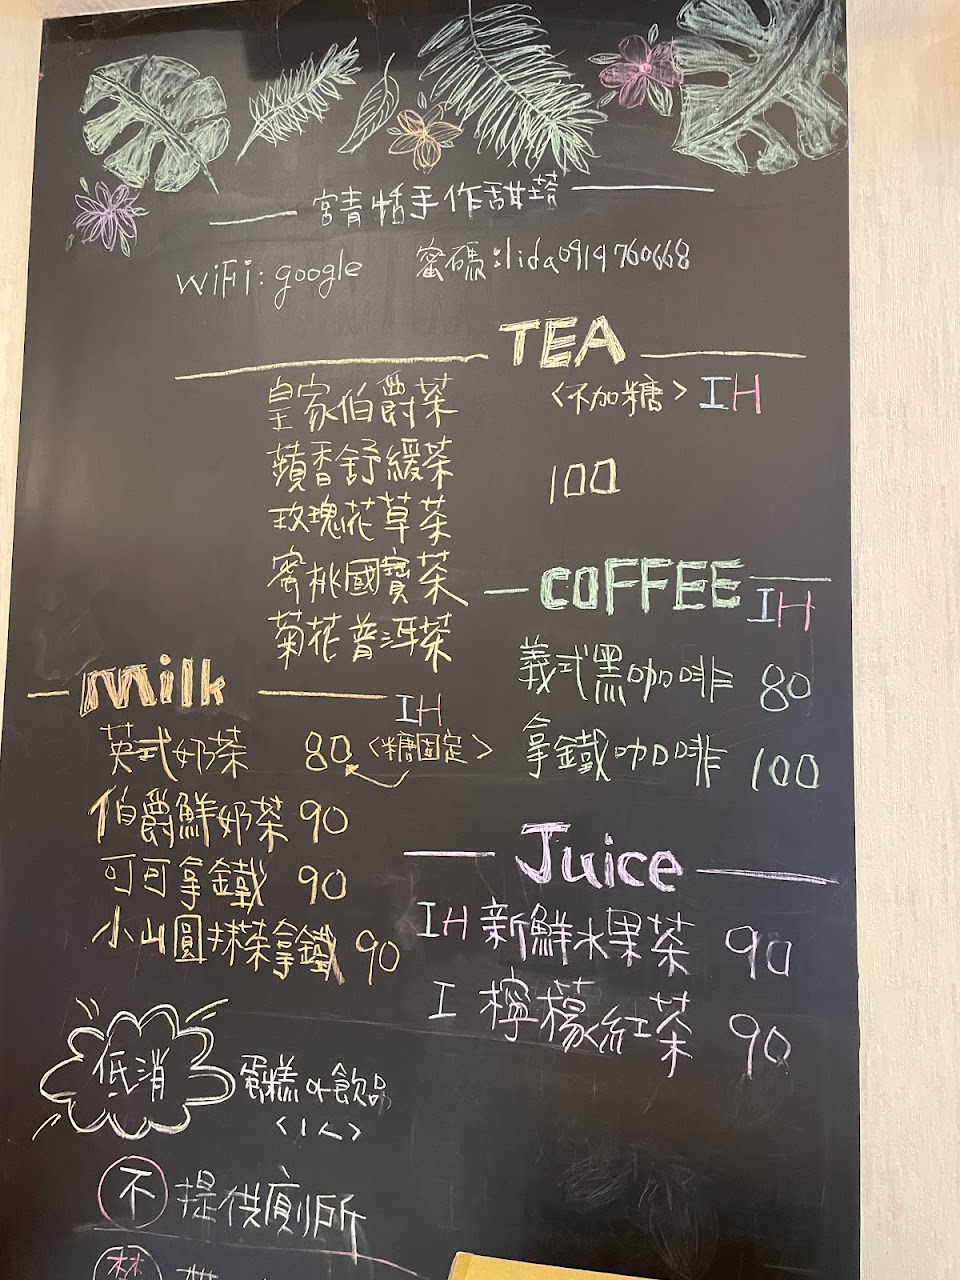 手作甜
WiFi: google 密碼:lida0919760668
TEA
<不加糖> I H
皇家伯爵茶
蘋香舒緩茶
100
玫瑰花草茶
蜜桃國寶茶
菊花普洱茶
COFFEE
I H
義式黑咖啡 80
拿鐵咖啡 100
Milk
I H
英式奶茶 80 <糖固定>
伯爵鮮奶茶 90
可可拿鐵 90
小山圓抹茶拿鐵 90
Juice
I H 新鮮水果茶 90
I 檸檬紅茶 90
低消
蛋糕 or 飲品
<1人>
不 提供廁所
禁